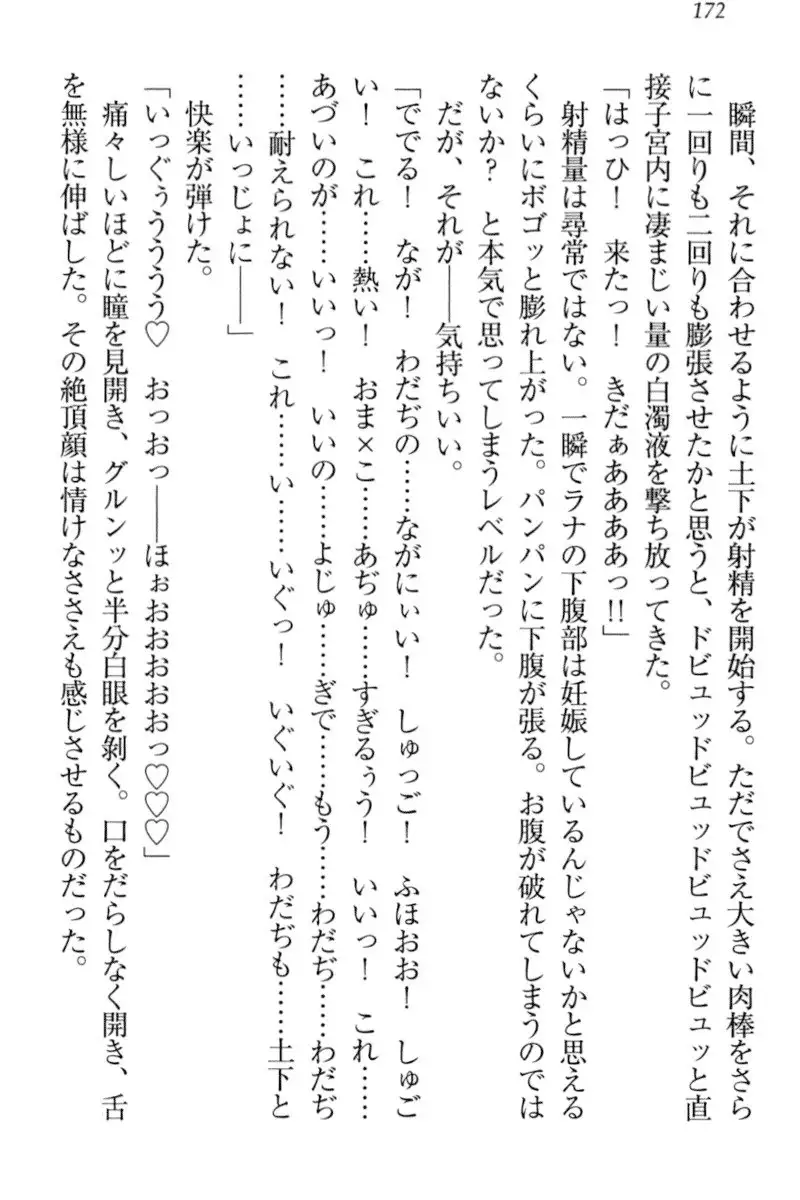 172
瞬間、それに合わせるように土下が射精を開始する。ただでさえ大きい肉棒をさら
に一回りも二回りも膨張させたかと思うと、ドビュッドビュッドビュッドビュッと直
接子宮内に凄まじい量の白濁液を撃ち放ってきた。
「はっひ！　来たっ！　きだぁああああっ!!」
射精量は尋常ではない。一瞬でラナの下腹部は妊娠しているんじゃないかと思える
くらいにボゴッと膨れ上がった。パンパンに下腹が張る。お腹が破れてしまうのでは
ないか？　と本気で思ってしまうレベルだった。
だが、それが――気持ちいい。
「ででる！　なが！　わだぢの……ながにぃい！　しゅっご！　ふほおお！　しゅご
い！　これ……熱い！　おま×こ……あぢゅ……すぎるぅう！　いいっ！　これ……
あづいのが……いいっ！　いいの……よじゅ……ぎで……もう……わだぢ……わだぢ
……耐えられない！　これ……い……いぐっ！　いぐいぐ！　わだぢも……土下と
……いっじょに――」
快楽が弾けた。
「いっぐぅうううう♡　おっおっ――ほぉおおおおおっ♡♡♡」
痛々しいほどに瞳を見開き、グルンッと半分白眼を剝く。口をだらしなく開き、舌
を無様に伸ばした。その絶頂顔は情けなささえも感じさせるものだった。